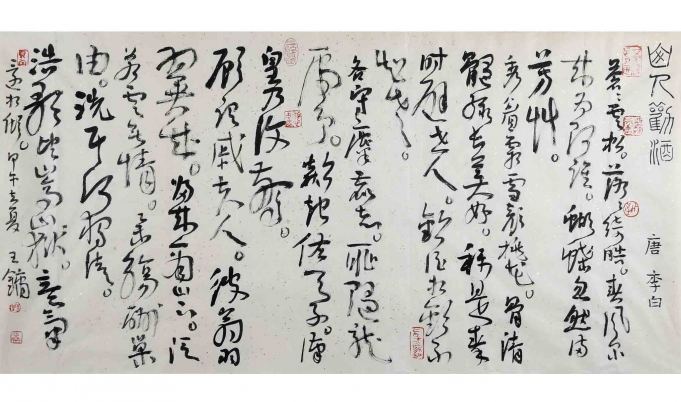 山人勸酒
唐 李白
蒼々雲松。落々綺皓。春風尔
来为阿誰。蝴蝶忽然満
芳艸。
秀眉霜雪顏桃花。骨清
髓綠长美好。稱是秦
时避世人。勸酒相歡不
知老。
各守麋鹿志。耻隨龍
虎争。欻起佐太子。漢
皇乃復驚。
顧謂戚夫人。彼翁羽
翼成。歸来商山下。泛
若雲無情。舉觴酹巢
由。洗耳何獨清。
浩歌望嵩嶽。意氣
還相傾。甲午立夏 王鏞